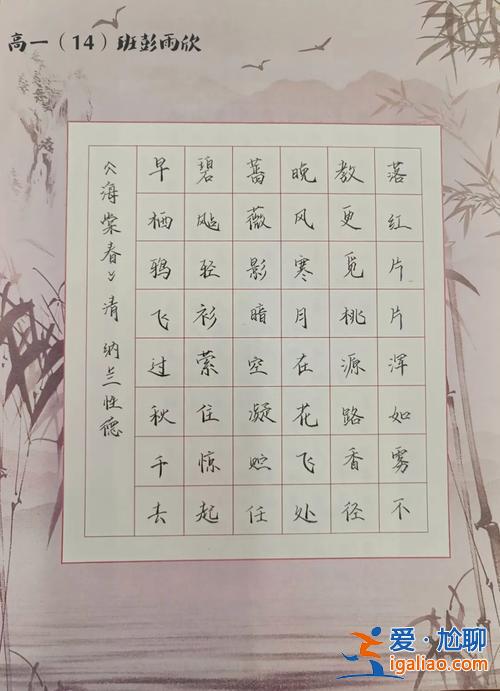 高一（14）班彭雨欣
落红片片浑如雾不
教更觅桃源路香径
晚风寒月在花飞处
蔷薇影暗空凝贮任
碧飐轻衫萦住惊起
早栖鸦飞过秋千去
《海棠春》清 纳兰性德
爱·尬聊
igaliao.com